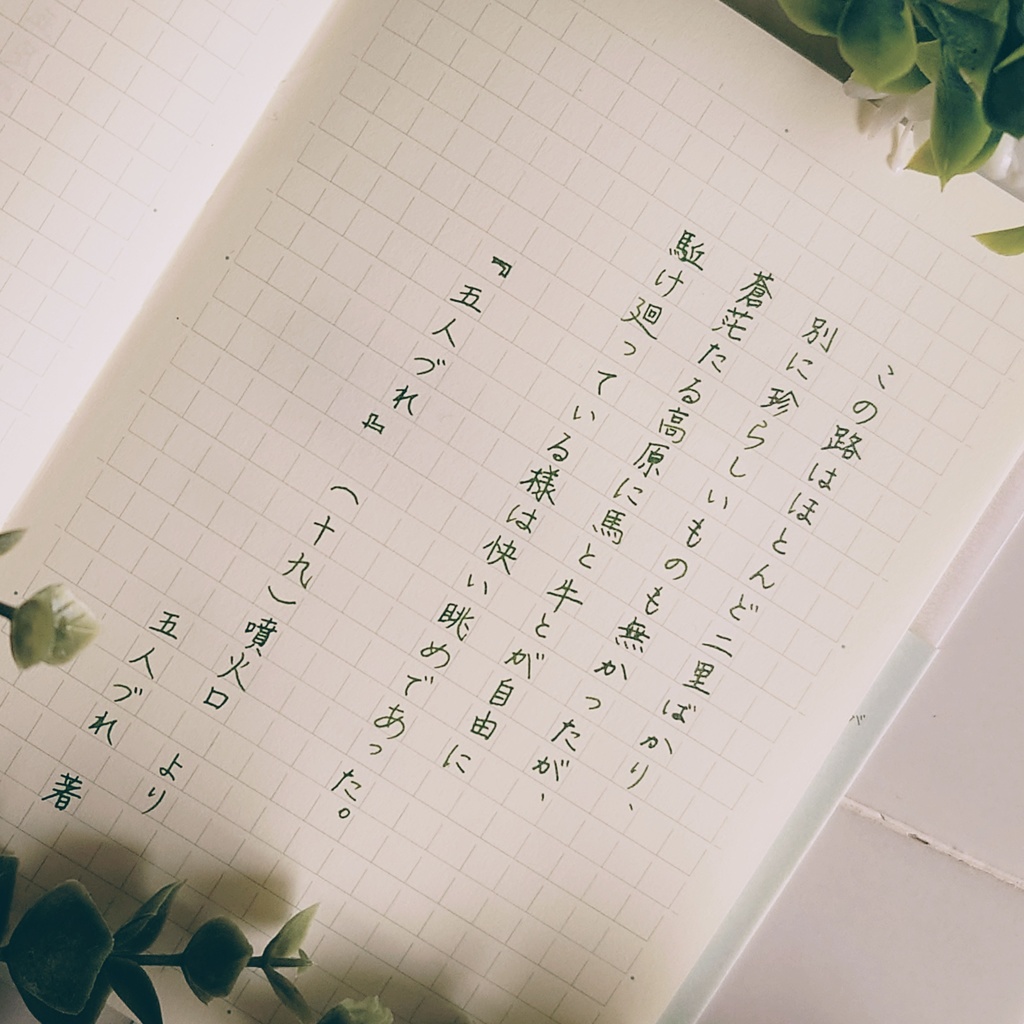 この路はほとんど二里ばかり、
別に珍らしいものも無かったが、
蒼茫たる高原に馬と牛とが自由に
駈け廻っている様は快い眺めであった。
『五人づれ』（十九）噴火口 より
五人づれ 著